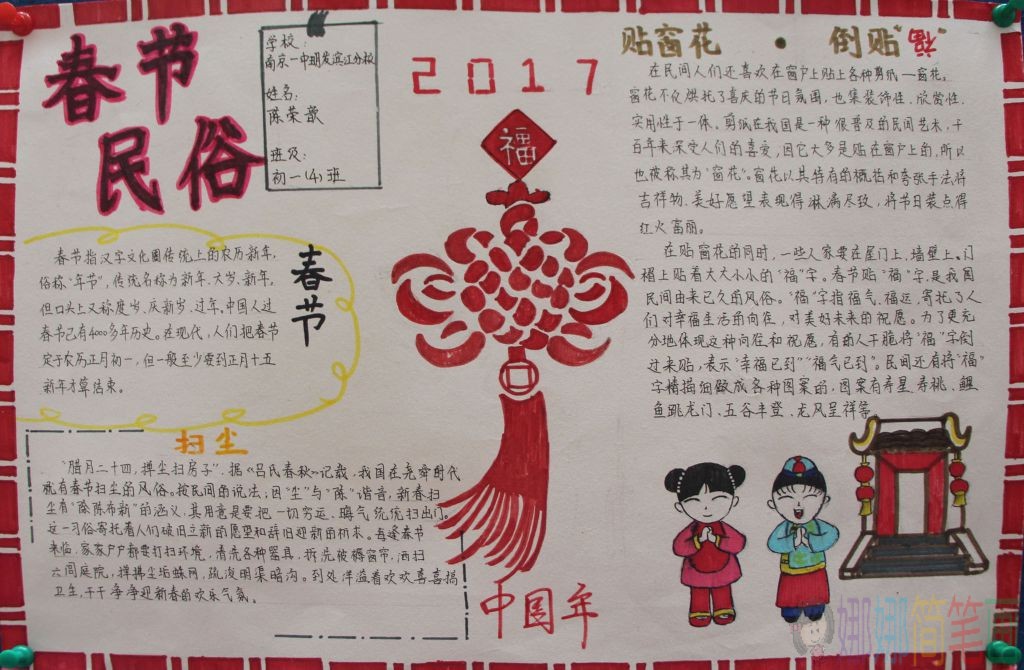 春节
民俗
学校：
南京一中明发滨江分校
姓名：
陈荣歆
班级：
初一(4)班
2017
福
贴窗花 · 倒贴"福"
在民间人们还喜欢在窗户上贴上各种剪纸—窗花。
窗花不仅烘托了喜庆的节日氛围，也集装饰性、欣赏性、
实用性于一体。剪纸在我国是一种很普及的民间艺术，千
百年来深受人们的喜爱，因它大多是贴在窗户上的，所以
也被称其为"窗花"。窗花以其特有的概括和夸张手法将
吉祥物、美好愿望表现得淋漓尽致，将节日装点得
红火富丽。
在贴窗花的同时，一些人家要在屋门上、墙壁上、门
楣上贴着大大小小的"福"字。春节贴"福"字，是我国
民间由来已久的风俗。"福"字指福气、福运，寄托了人
们对幸福生活的向往，对美好未来的祝愿。为了更充
分地体现这种向往和祝愿，有的人干脆将"福"字倒
过来贴，表示"幸福已到""福气已到"。民间还有将"福"
字精描细做成各种图案的，图案有寿星、寿桃、鲤
鱼跳龙门、五谷丰登、龙凤呈祥等。
春节
春节指汉字文化圈传统上的农历新年，
俗称"年节"，传统名称为新年、大岁、新年，
但口头上又称度岁、庆新岁、过年。中国人过
春节已有4000多年历史。在现代，人们把春节
定于农历正月初一，但一般至少要到正月十五
新年才算结束。
扫尘
"腊月二十四，掸尘扫房子"，据《吕氏春秋》记载，我国在尧舜时代
就有春节扫尘的风俗。按民间的说法：因"尘"与"陈"谐音，新春扫
尘有"除陈布新"的涵义，其用意是要把一切穷运、晦气统统扫出门。
这一习俗寄托着人们破旧立新的愿望和辞旧迎新的祈求。每逢春节
来临，家家户户都要打扫环境，清洗各种器具，拆洗被褥窗帘，洒扫
六闾庭院，掸拂尘垢蛛网，疏浚明渠暗沟。到处洋溢着欢欢喜喜搞
卫生、干干净净迎新春的欢乐气氛。
中国年
娜娜简笔画